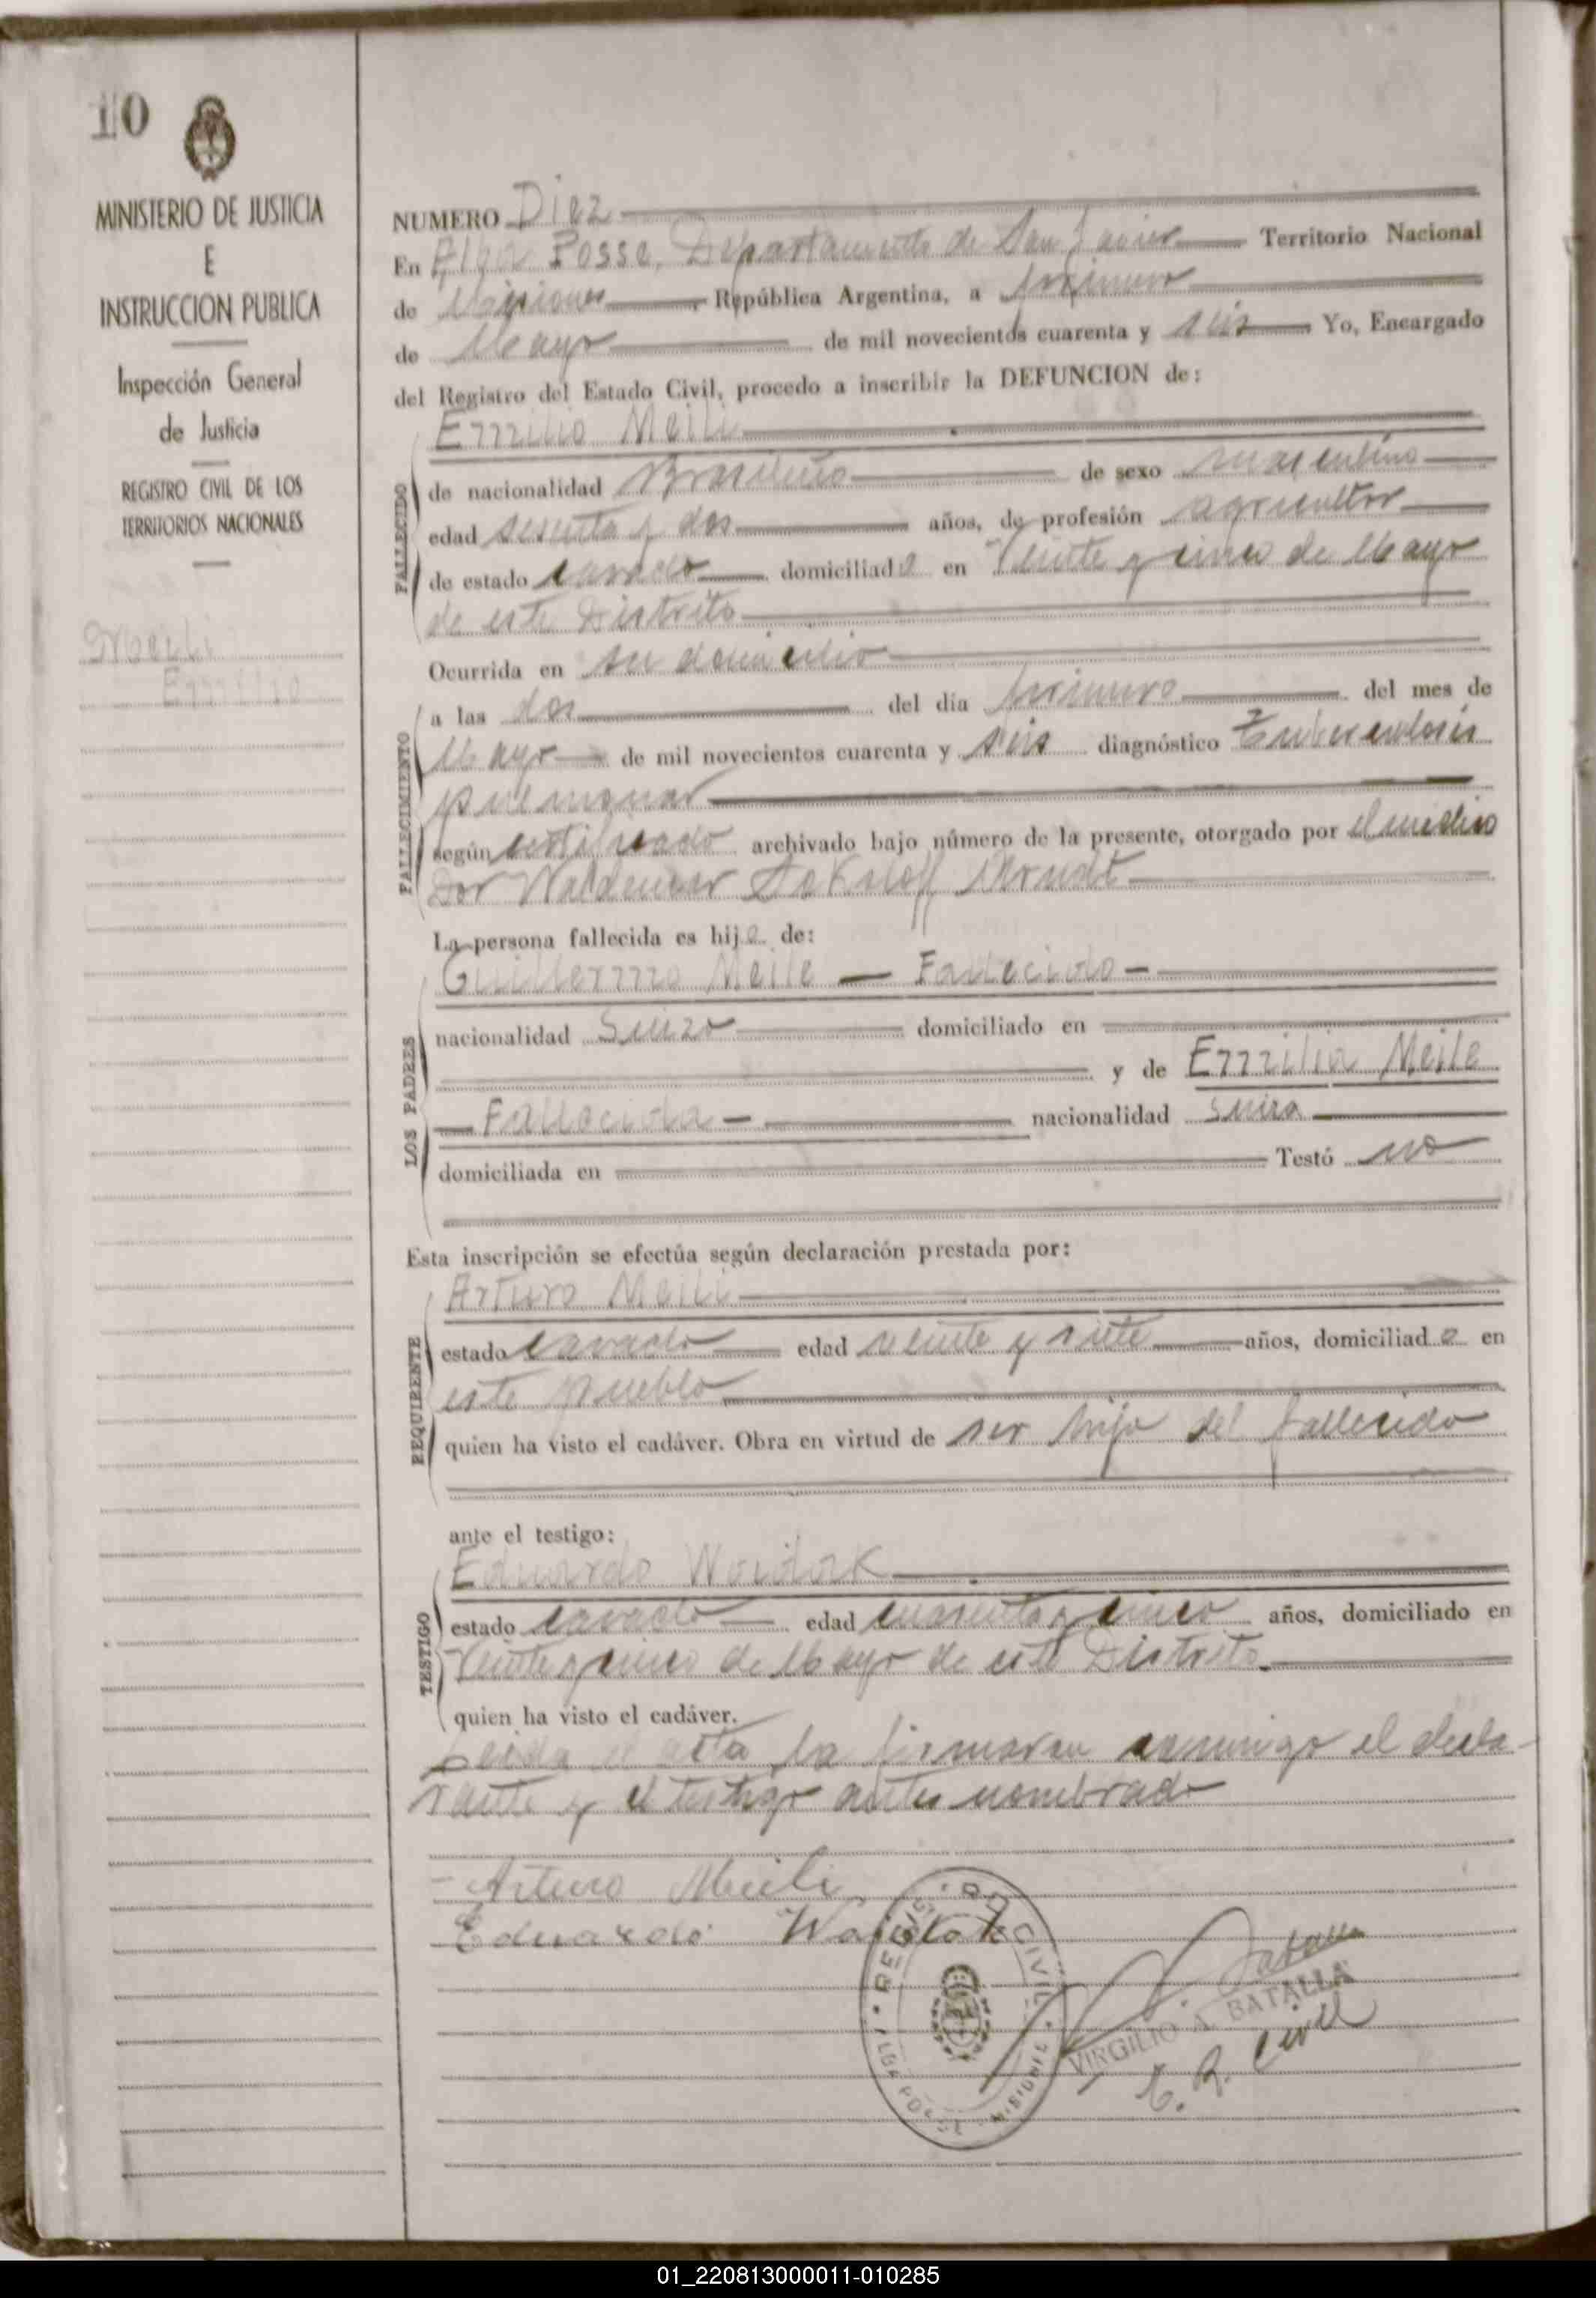 10
MINISTERIO DE JUSTICIA
E
INSTRUCCION PUBLICA
Inspección General
de Justicia
REGISTRO CIVIL DE LOS
TERRITORIOS NACIONALES
Meili
Emilio
NUMERO Diez
En Alba Posse, Departamento de San Javier Territorio Nacional
de Misiones, República Argentina, a primero
de Mayo de mil novecientos cuarenta y seis Yo, Encargado
del Registro del Estado Civil, procedo a inscribir la DEFUNCION de:
Emilio Meili
FALLECIDO
de nacionalidad Brasileño de sexo masculino
edad sesenta y dos años, de profesión agricultor
de estado casado domiciliado en Veinte y cinco de Mayo
de este Distrito
Ocurrida en su domicilio
FALLECIMIENTO
a las dos del día primero del mes de
Mayo de mil novecientos cuarenta y seis diagnóstico Tuberculosis
pulmonar
según certificado archivado bajo número de la presente, otorgado por el médico
Dor Waldemar Sakaloff Arndt
La persona fallecida es hijo de:
LOS PADRES
Guillermo Meile — Fallecido —
nacionalidad Suizo domiciliado en
y de Emilia Meile
— Fallecida — nacionalidad suiza
domiciliada en Testó no
Esta inscripción se efectúa según declaración prestada por:
REQUIRENTE
Arturo Meili
estado casado edad veinte y siete años, domiciliado en
este pueblo
quien ha visto el cadáver. Obra en virtud de ser hijo del fallecido
ante el testigo:
TESTIGO
Eduardo Woidak
estado casado edad cuarenta y cinco años, domiciliado en
Veinte y cinco de Mayo de este Distrito.
quien ha visto el cadáver.
Leida el acta la firmaron conmigo el decla-
rante y el testigo antes nombrado
Arturo Meili
Eduardo Woidak
REGISTRO CIVIL
ALBA POSSE MISIONES
VIRGILIO A. BATALLA
E. R. Civil
01_220813000011-010285